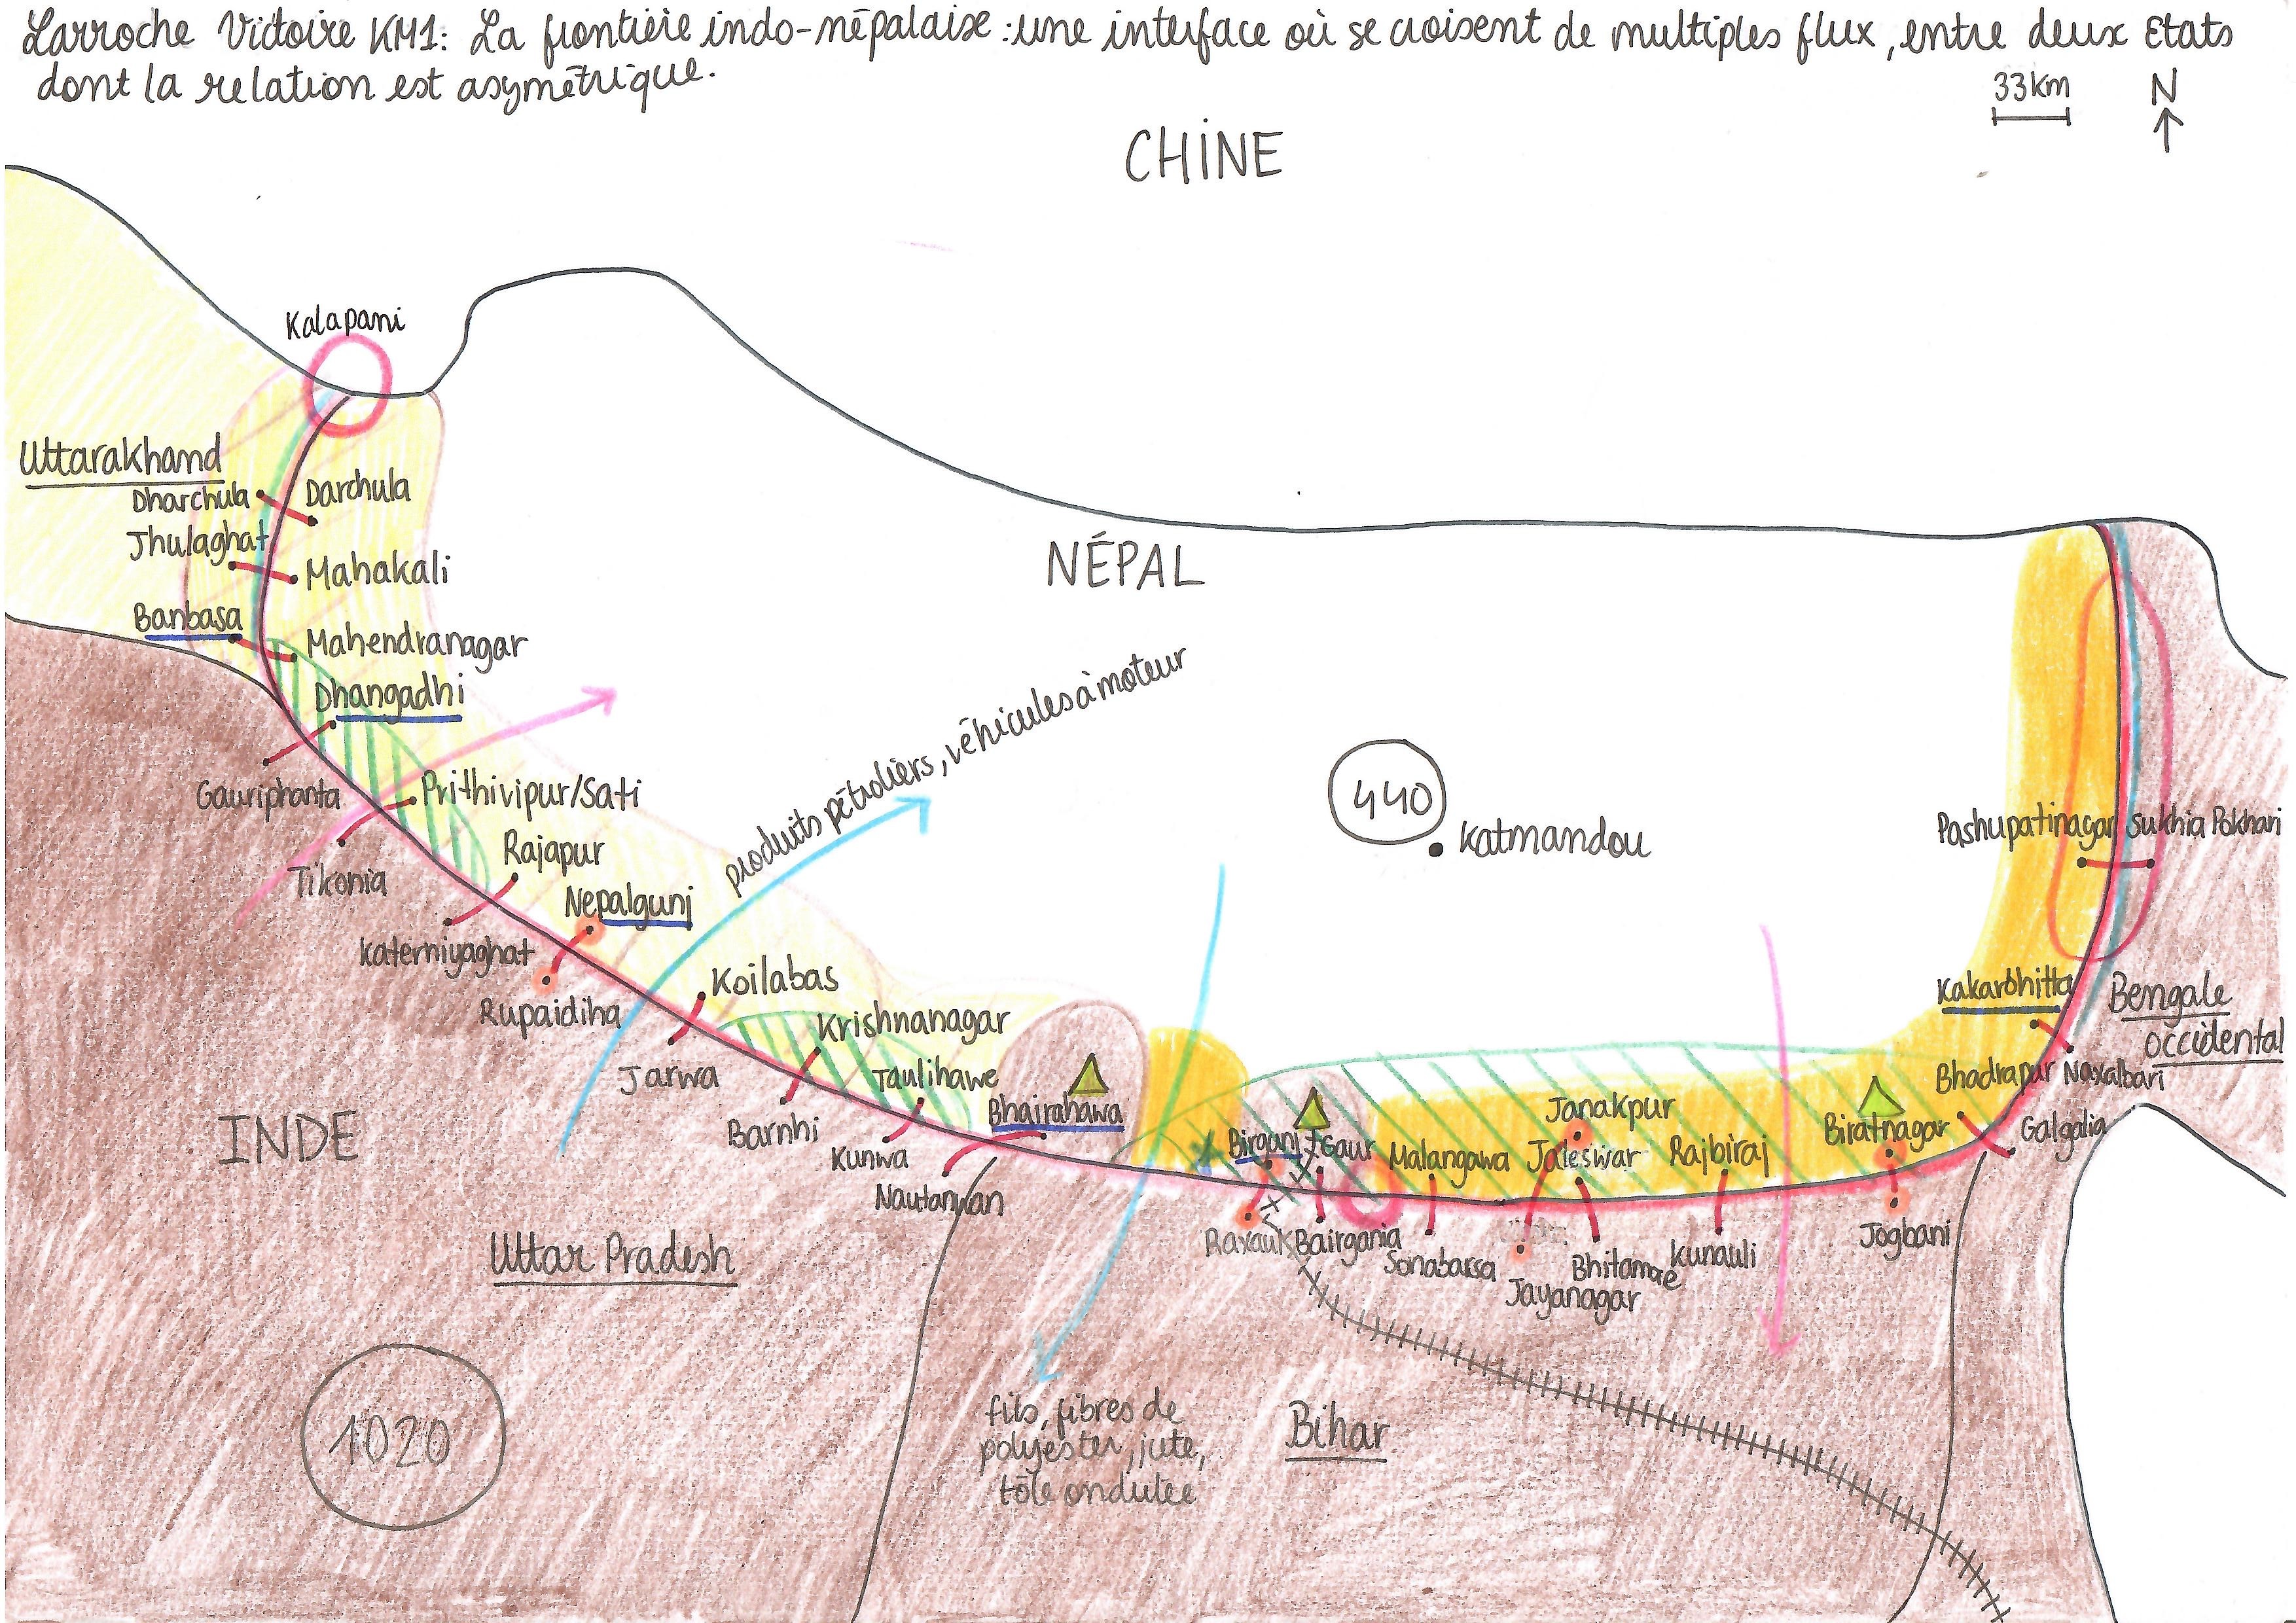 Larroche Victoire KM1: La frontière indo-népalaise : une interface où se croisent de multiples flux, entre deux Etats
dont la relation est asymétrique.
33km
N
CHINE
Kalapani
Uttarakhand
Dharchula
Darchula
Jhulaghat
Mahakali
Banbasa
Mahendranagar
Dhangadhi
Gauriphanta
Prithivipur/Sati
Tikonia
Rajapur
Katerniyaghat
Nepalgunj
Rupaidiha
Koilabas
Jarwa
Krishnanagar
Barnhi
Taulihawe
Kunwa
Bhairahawa
Nautanwan
NÉPAL
produits pétroliers, véhicules à moteur
440
Katmandou
Pashupatinagar
Sukhia Pokhari
Kakarbhitta
Bengale
occidental
Bhadrapur
Naxalbari
Galgalia
Birganj
Gaur
Malangawa
Janakpur
Jaleswar
Rajbiraj
Biratnagar
Raxaul
Bairgania
Sonabarsa
Jayanagar
Bhitamae
Kunauli
Jogbani
INDE
Uttar Pradesh
1020
fils, fibres de
polyester, jute,
tôle ondulée
Bihar